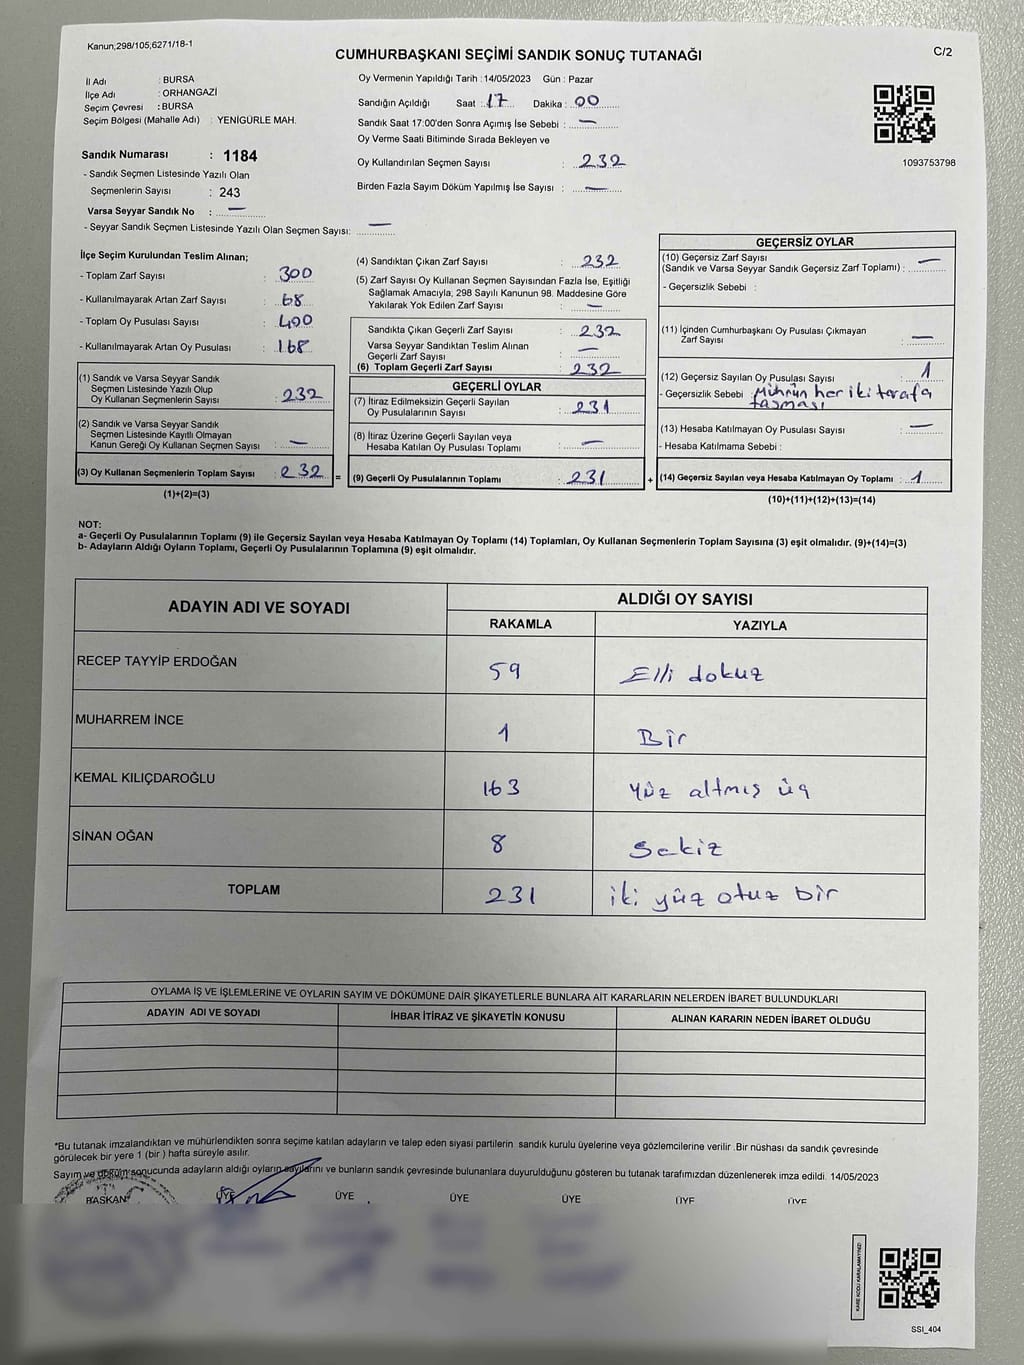 Kanun;298/105;6271/18-1
C/2
CUMHURBAŞKANI SEÇİMİ SANDIK SONUÇ TUTANAĞI
İl Adı : BURSA
İlçe Adı : ORHANGAZİ
Seçim Çevresi : BURSA
Seçim Bölgesi (Mahalle Adı) : YENİGÜRLE MAH.
Sandık Numarası : 1184
- Sandık Seçmen Listesinde Yazılı Olan
Seçmenlerin Sayısı : 243
Varsa Seyyar Sandık No : —
- Seyyar Sandık Seçmen Listesinde Yazılı Olan Seçmen Sayısı: —
Oy Vermenin Yapıldığı Tarih :14/05/2023 Gün : Pazar
Sandığın Açıldığı Saat : 17 Dakika : 00
Sandık Saat 17:00'den Sonra Açımış İse Sebebi : —
Oy Verme Saati Bitiminde Sırada Bekleyen ve
Oy Kullandırılan Seçmen Sayısı : 232
Birden Fazla Sayım Döküm Yapılmış İse Sayısı : —
1093753798
İlçe Seçim Kurulundan Teslim Alınan;
- Toplam Zarf Sayısı : 300
- Kullanılmayarak Artan Zarf Sayısı : 68
- Toplam Oy Pusulası Sayısı : 400
- Kullanılmayarak Artan Oy Pusulası : 168
(1) Sandık ve Varsa Seyyar Sandık
Seçmen Listesinde Yazılı Olup
Oy Kullanan Seçmenlerin Sayısı : 232
(2) Sandık ve Varsa Seyyar Sandık
Seçmen Listesinde Kayıtlı Olmayan
Kanun Gereği Oy Kullanan Seçmen Sayısı : —
(3) Oy Kullanan Seçmenlerin Toplam Sayısı : 232
(1)+(2)=(3)
(4) Sandıktan Çıkan Zarf Sayısı : 232
(5) Zarf Sayısı Oy Kullanan Seçmen Sayısından Fazla İse, Eşitliği
Sağlamak Amacıyla, 298 Sayılı Kanunun 98. Maddesine Göre
Yakılarak Yok Edilen Zarf Sayısı : —
Sandıkta Çıkan Geçerli Zarf Sayısı : 232
Varsa Seyyar Sandıktan Teslim Alınan
Geçerli Zarf Sayısı : —
(6) Toplam Geçerli Zarf Sayısı : 232
GEÇERLİ OYLAR
(7) İtiraz Edilmeksizin Geçerli Sayılan
Oy Pusulalarının Sayısı : 231
(8) İtiraz Üzerine Geçerli Sayılan veya
Hesaba Katılan Oy Pusulası Toplamı : —
= (9) Geçerli Oy Pusulalarının Toplamı : 231
GEÇERSİZ OYLAR
(10) Geçersiz Zarf Sayısı
(Sandık ve Varsa Seyyar Sandık Geçersiz Zarf Toplamı) : —
- Geçersizlik Sebebi :
(11) İçinden Cumhurbaşkanı Oy Pusulası Çıkmayan
Zarf Sayısı : —
(12) Geçersiz Sayılan Oy Pusulası Sayısı : 1
- Geçersizlik Sebebi : Mührün her iki tarafa
taşması
(13) Hesaba Katılmayan Oy Pusulası Sayısı : —
- Hesaba Katılmama Sebebi :
+ (14) Geçersiz Sayılan veya Hesaba Katılmayan Oy Toplamı : 1
(10)+(11)+(12)+(13)=(14)
NOT:
a- Geçerli Oy Pusulalarının Toplamı (9) ile Geçersiz Sayılan veya Hesaba Katılmayan Oy Toplamı (14) Toplamları, Oy Kullanan Seçmenlerin Toplam Sayısına (3) eşit olmalıdır. (9)+(14)=(3)
b- Adayların Aldığı Oyların Toplamı, Geçerli Oy Pusulalarının Toplamına (9) eşit olmalıdır.
ADAYIN ADI VE SOYADI ALDIĞI OY SAYISI
RAKAMLA YAZIYLA
RECEP TAYYİP ERDOĞAN 59 Elli dokuz
MUHARREM İNCE 1 Bir
KEMAL KILIÇDAROĞLU 163 Yüz altmış üç
SİNAN OĞAN 8 Sekiz
TOPLAM 231 iki yüz otuz bir
OYLAMA İŞ VE İŞLEMLERİNE VE OYLARIN SAYIM VE DÖKÜMÜNE DAİR ŞİKAYETLERLE BUNLARA AİT KARARLARIN NELERDEN İBARET BULUNDUKLARI
ADAYIN ADI VE SOYADI İHBAR İTİRAZ VE ŞİKAYETİN KONUSU ALINAN KARARIN NEDEN İBARET OLDUĞU
*Bu tutanak imzalandıktan ve mühürlendikten sonra seçime katılan adayların ve talep eden siyasi partilerin sandık kurulu üyelerine veya gözlemcilerine verilir .Bir nüshası da sandık çevresinde
görülecek bir yere 1 (bir ) hafta süreyle asılır.
Sayım ve döküm sonucunda adayların aldığı oyların sayılarını ve bunların sandık çevresinde bulunanlara duyurulduğunu gösteren bu tutanak tarafımızdan düzenlenerek imza edildi. 14/05/2023
BAŞKAN ÜYE ÜYE ÜYE ÜYE ÜYE ÜYE
KARE KODU KARALAMAYINIZ!
SSI_404